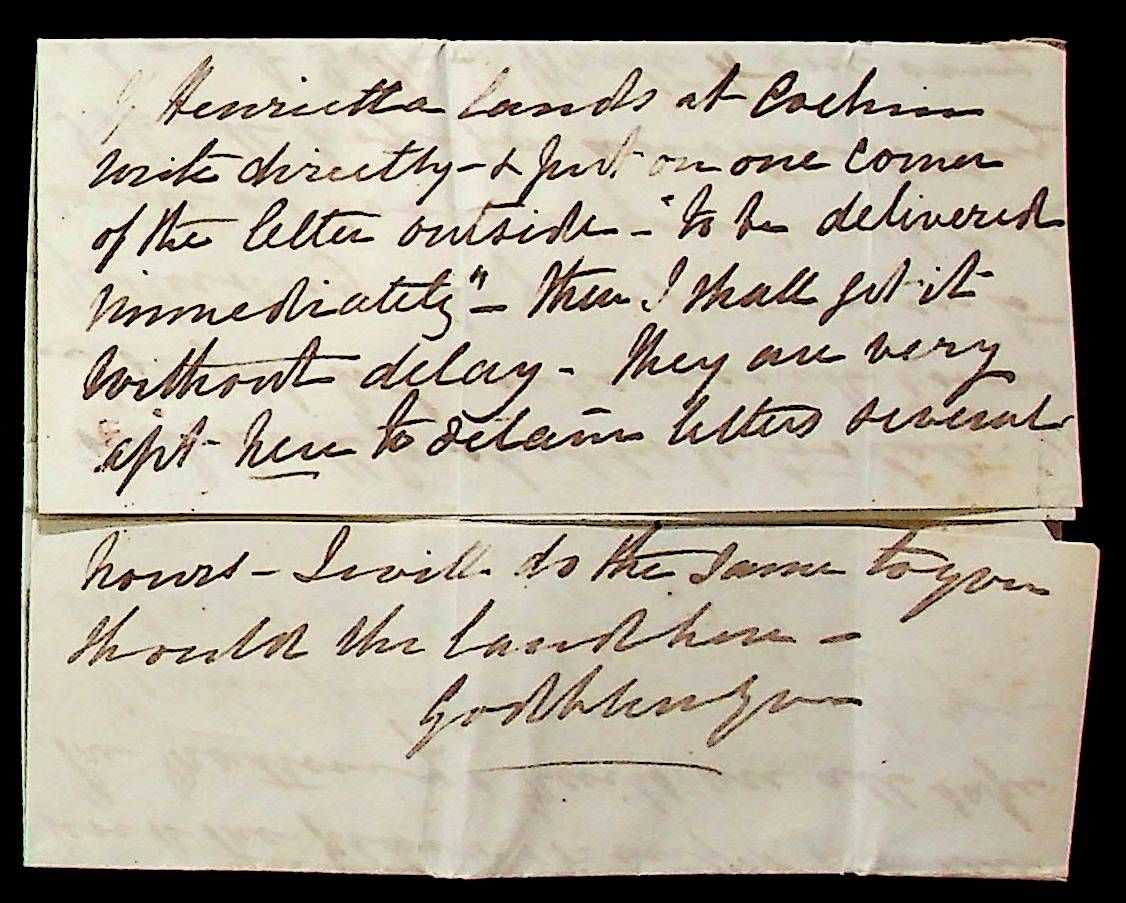 If Henrietta lands at Cochin
write directly - & put on one corner
of the letter outside - "to be delivered
immediately" - then I shall get it
without delay - They are very
apt here to detain letters several
hours - I will do the same to you
should she land here -
God bless you